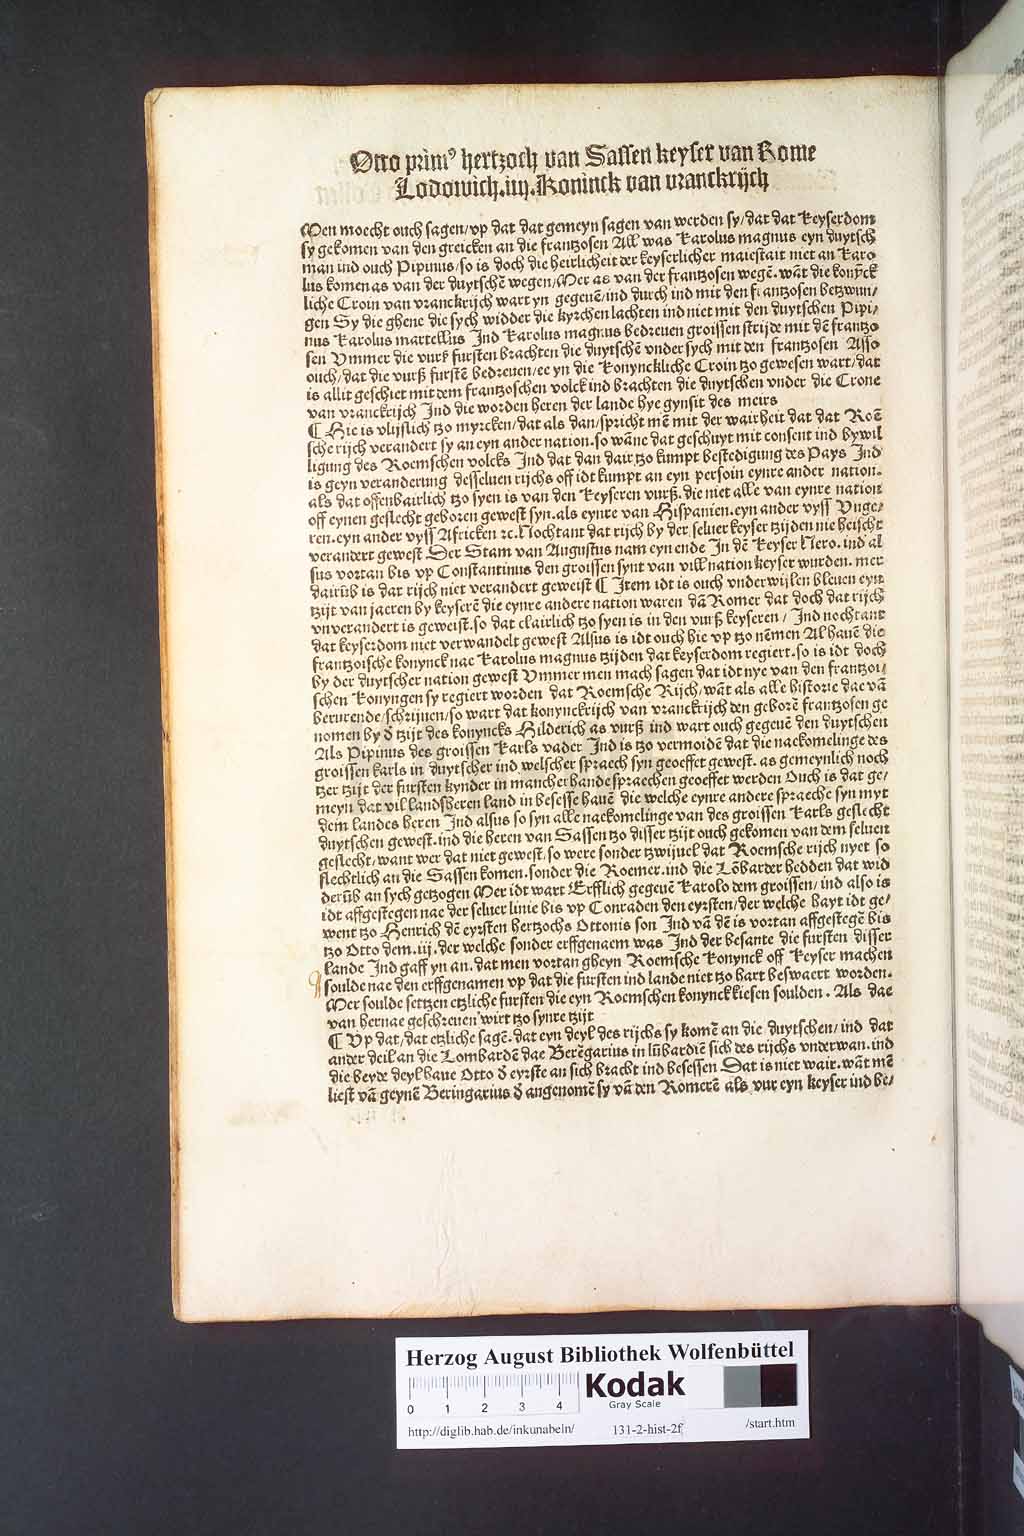 Otto prim⁹ hertzoch van Sassen keyser van Rome
Lodowich.iiij.Koninck van vranckrijch
Men moecht ouch sagen/vp dat dat gemeyn sagen van werden sy/dat dat keyserdom
sy gekomen van den greicken an die frantzosen All was Karolus magnus eyn duytsch
man ind ouch Pipinus/so is doch die heirlicheit der keyserlicher maiestait niet an Karo
lus komen as van der duytschē wegen/Mer as van der frantzosen wegē. wāt die konȳck
liche Croin van vranckrijch wart yn gegeuē/ind durch ind mit den frantzosen betzwun/
gen Sy die ghene die sych widder die kyrchen lachten ind niet mit den duytschen Pipi/
nus Karolus martellus Ind Karolus magnus bedreuen groissen strijde mit dē frantzo
sen Vmmer die vurß fursten brachten die duytschē vnder sych mit den frantzosen Asso
ouch/dat die vurß furstē bedreuen/ee yn die Konynckliche Croin tzo gewesen wart/dat
is allit geschiet mit dem frantzoschen volck ind brachten die duytschen vnder die Crone
van vranckrijch Ind die worden heren der lande hye gynsit des meirs
¶ Hie is vlijslich tzo myrcken/dat als dan/spricht mē mit der wairheit dat dat Roē
sche rijch verandert sy an eyn ander nation. so wāne dat geschuyt mit consent ind bywil
ligung des Roemschen volcks Ind dat dan dair tzo kumpt bestedigung des Pays Ind
is geyn veranderung desseluen rijchs off idt kumpt an eyn persoin eynre ander nation.
als dat offenbairlich tzo syen is van den keyseren vurß. die niet alle van eynre nation
off eynen geslecht geboren gewest syn. als eynre van Hispanien. eyn ander vyss Vnge/
ren. eyn ander vyss Africken ꝛc. Nochtant dat rijch by der seluer keyser tzijden nie heischt
verandert gewest Der Stam van Augustus nam eyn ende In dē keyser Nero. ind al
sus vortan bis vp Constantinus den groissen synt van vill nation keyser wurden. mer
dairūb is dar rijch niet verandert geweist ¶ Item idt is ouch vnderwijlen bleuen eyn
tzijt van jaeren by keyserē die eynre andere nation waren dā Romer dat doch dat rijch
vnverandert is geweist. so dat clairlich tzo syen is in den vurß keyseren/ Ind nochtant
dat keyserdom niet verwandelt gewest Alsus is idt ouch hie vp tzo nēmen Al hauē die
frantzoische konynck nae Karolus magnus tzijden dat keyserdom regiert. so is idt doch
by der duytscher nation gewest Vmmer men mach sagen dat idt nye van den frantzoi/
schen Konyngen sy regiert worden dat Roemsche Rijch/wāt als alle historie dae vā
berurende/schrijuen/so wart dat konynckrijch van vranckrijch den geborē frantzosen ge
nomen by đ tzijt des konyncks Hilderich as vurß ind wart ouch gegeuē den duytschen
Als Pipinus des groissen Karls vader Ind is tzo vermoidē dat die naekomelinge des
groissen karls in duytscher ind welscher spraech syn geoeffet gewest. as gemeynlich noch
tzer tzijt der fursten kynder in mancher hande spraechen geoeffet werden Ouch is dat ge/
meyn dat vil landsheren land in besesse hauē die welche eynre andere spraeche syn myt
dem landes heren Ind alsus so syn alle naekomelinge van des groissen Karls geslecht
duytschen gewest. ind die heren van Sassen tzo disser tzijt ouch gekomen van dem seluen
geslecht/want wer dat niet gewest/so were sonder tzwijuel dat Roemsche rijch nyet so
slechtlich an die Sassen komen. sonder die Roemer. ind die Lōbarder hedden dat wid
derūb an sych getzogen Mer idt wart Erfflich gegeuē Karolo dem groissen/ind also is
idt affgestegen nae der seluer linie bis vp Conraden den eyrsten/der welche bayt idt ge/
went tzo Henrich dē eyrsten hertzochs Ottonis son Ind vā dē is vortan affgestegē bis
tzo Otto dem.iij.der welche sonder erffgenaem was Ind der besante die fursten disser
lande Ind gaff yn an. dat men vortan gheyn Roemsche Konynck off keyser machen
soulde nae den erffgenamen vp dat die fursten ind lande niet tzo hart beswaert worden.
Mer soulde setzen etzliche fursten die eyn Roemschen konynck kiesen soulden. Als dae
van hernae geschreuen wirt tzo synre tzijt
¶ Vp dat/dat etzliche sagē. dat eyn deyl des rijchs sy komē an die duytschen/ind dat
ander deil an die Lombardē dae Berēgarius in lūbardiē sich des rijchs vnderwan. ind
die beyde deyl haue Otto đ eyrste an sich bracht ind besessen Dat is niet wair. wāt mē
liest vā geynē Beringarius đ angenomē sy vā den Romerē als vur eyn keyser ind be/
Herzog August Bibliothek Wolfenbüttel
0 1 2 3 4
Kodak
Gray Scale
http://diglib.hab.de/inkunabeln/ 131-2-hist-2f /start.htm